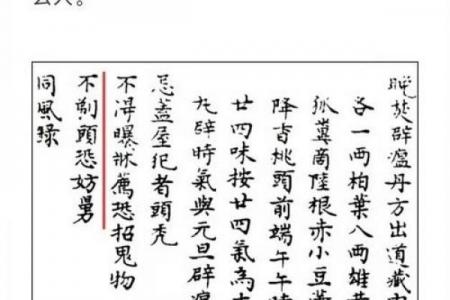 晚焚辟瘟丹方出道藏
各一兩柏葉八兩雄
商陸根赤小豆
降皆桃頭前端午午
廿四味按廿四氣為
九辟時氣與元旦辟瘟
忌蓋屋犯者頭禿
不得曝牀薦恐招鬼物
不剃頭恐妨舅
同風錄